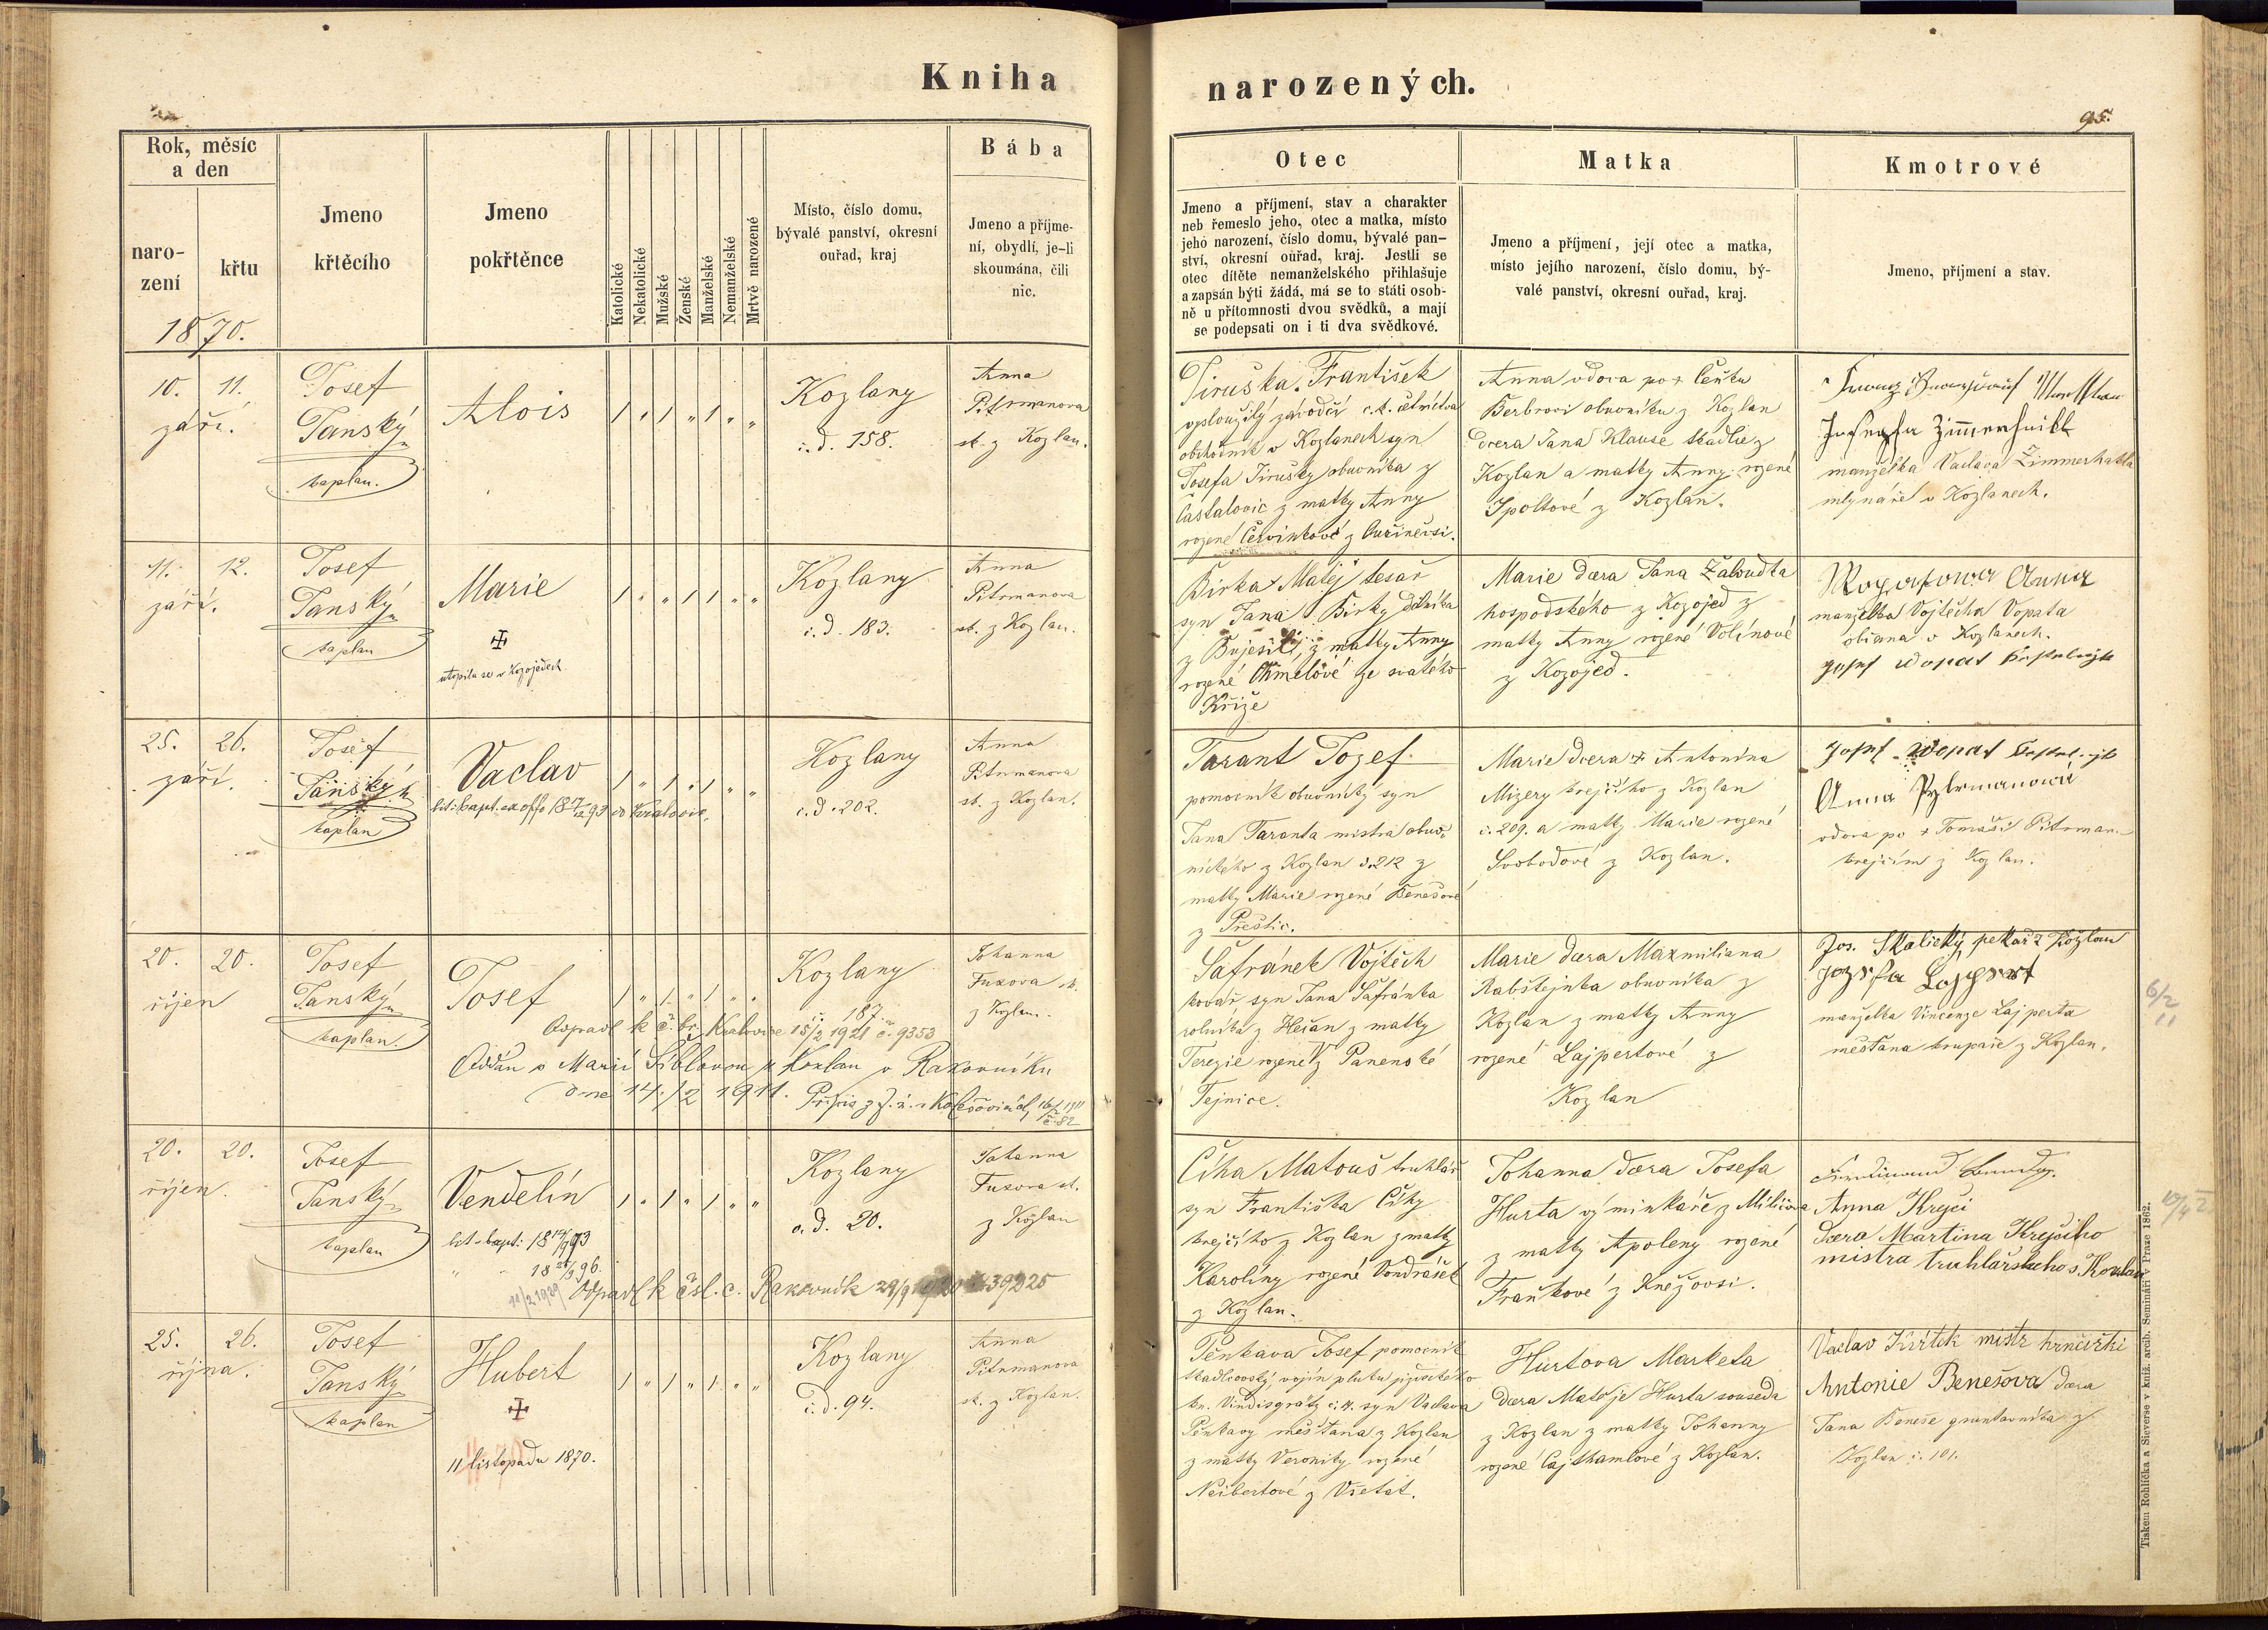 Kniha
narozených.
95.
Rok, měsíc
a den
naro-
zení
křtu
1870.
Jmeno
křtěcího
Jmeno
pokřtěnce
Katolické
Nekatolické
Mužské
Ženské
Manželské
Nemanželské
Mrtvě narozené
Místo, číslo domu,
bývalé panství, okresní
ouřad, kraj
Bába
Jmeno a příjme-
ní, obydlí, je-li
skoumána, čili
nic.
Otec
Jmeno a příjmení, stav a charakter
neb řemeslo jeho, otec a matka, místo
jeho narození, číslo domu, bývalé pan-
ství, okresní ouřad, kraj. Jestli se
otec dítěte nemanželského přihlašuje
a zapsán býti žádá, má se to státi osob-
ně u přítomnosti dvou svědků, a mají
se podepsati on i ti dva svědkové.
Matka
Jmeno a příjmení, její otec a matka,
místo jejího narození, číslo domu, bý-
valé panství, okresní ouřad, kraj.
Kmotrové
Jmeno, příjmení a stav.
10. 11.
září.
Josef
Tanský
kaplan.
Alois
Kozlany
č.d. 158.
Anna
Pitrmanova
zk. z Kozlan.
Jiruška František
vysloužilý závodčí c.k. četnictva
obchodník v Kozlanech syn
Josefa Jirušky obuvníka z
Častalovic z matky Anny
rozené Červinkové z Ouřinevsi.
Anna vdova po + Čeňku
Berbrovi obuvníku z Kozlan
dcera Jana Klause z
Kozlan a matky Anny rozené
Ipoltové z Kozlan.
manželka Vaclava Zimmerhakla
mlynáře v Kozlanech.
11. 12.
září.
Josef
Tanský
kaplan
Marie
utopila se v Kozojedech
Kozlany
č.d. 183.
Anna
Pitrmanova
zk. z Kozlan.
Birka Matěj tesař
syn Jana Birky dělníka
z Bujesil, z matky Anny
rozené Chmelové ze svatého
Kříže
Marie dcera Jana Žaloudka
hospodského z Kozojed z
matky Anny rozené Volínové
z Kozojed.
Anna
manželka Vojtěcha Vopata
občana v Kozlanech.
25. 26.
září.
Josef
Tanský
kaplan
Vaclav
Kozlany
č.d. 202.
Anna
Pitrmanova
zk. z Kozlan.
Tarant Jozef
pomocník obuvnický syn
Jana Taranta mistra obuv-
nického z Kozlan č.212 z
matky Marie rozené Benešové
z Přeštic.
Marie dcera + Antonína
Mizery krejčího z Kozlan
č. 209. a matky Marie rozené
Svobodové z Kozlan.
Anna Pytrmanowá
vdova po + Tomáši Pitrman
krejčím z Kozlan.
20. 20.
říjen
Josef
Tanský
kaplan.
Josef
Kozlany
č. 187.
Odpadl k č. br. Kralovice 15/2 1921 č. 9353
Oddán s Marií Siblovou z Kozlan v Rakovníku
dne 14./2 1911.
Johanna
Fuxova zk.
z Kozlan.
Šafránek Vojtěch
kovář syn Jana Šafránka
rolníka z Hečan z matky
Terezie rozené z Panenské
Tejnice.
Marie dcera Maxmiliana
Rabštejnka obuvníka z
Kozlan z matky Anny
rozené Lajpertové z
Kozlan
Jos. Skalický pekař z Kozlan
manželka Vincenze Lajperta
měšťana krupaře z Kozlan.
6/2
11
20. 20.
říjen.
Josef
Tanský
kaplan
Vendelín
Odpadl k čsl. c. Rakovník
Kozlany
č.d. 20.
Johanna
Fuxova zk.
z Kozlan
Číha Matouš truhlář
syn Františka Číhy
krejčího z Kozlan z matky
Karolíny rozené Vondrášek
z Kozlan.
Johanna dcera Josefa
Hurta výminkáře z Miličova
z matky Apoleny rozené
Fraňkové z Kněžovsi.
Anna Krejci
dcera Martina Krejčího
mistra truhlářského z Kozlan
25. 26.
října.
Josef
Tanský
kaplan
Hubert
11 listopadu 1870.
Kozlany
č.d. 94.
Anna
Pitrmanova
zk. z Kozlan.
Pěnkava Josef pomocník
vojín pluku
kn. Vindisgrätz č. syn Vaclava
Pěnkavy měšťana z Kozlan
z matky Veroniky rozené
Neibertové z Všetat.
Hurtova Marketa
dcera Matěje Hurta souseda
z Kozlan z matky Johanny
rozené Cajthamlové z Kozlan.
Vaclav mistr hrnčířski
Antonie Benešova dcera
Jana Beneše gruntovníka z
Kozlan č. 101.
Tiskem Rohlíčka a Sieverse v kníž. arcib. Semináři v Praze 1862.